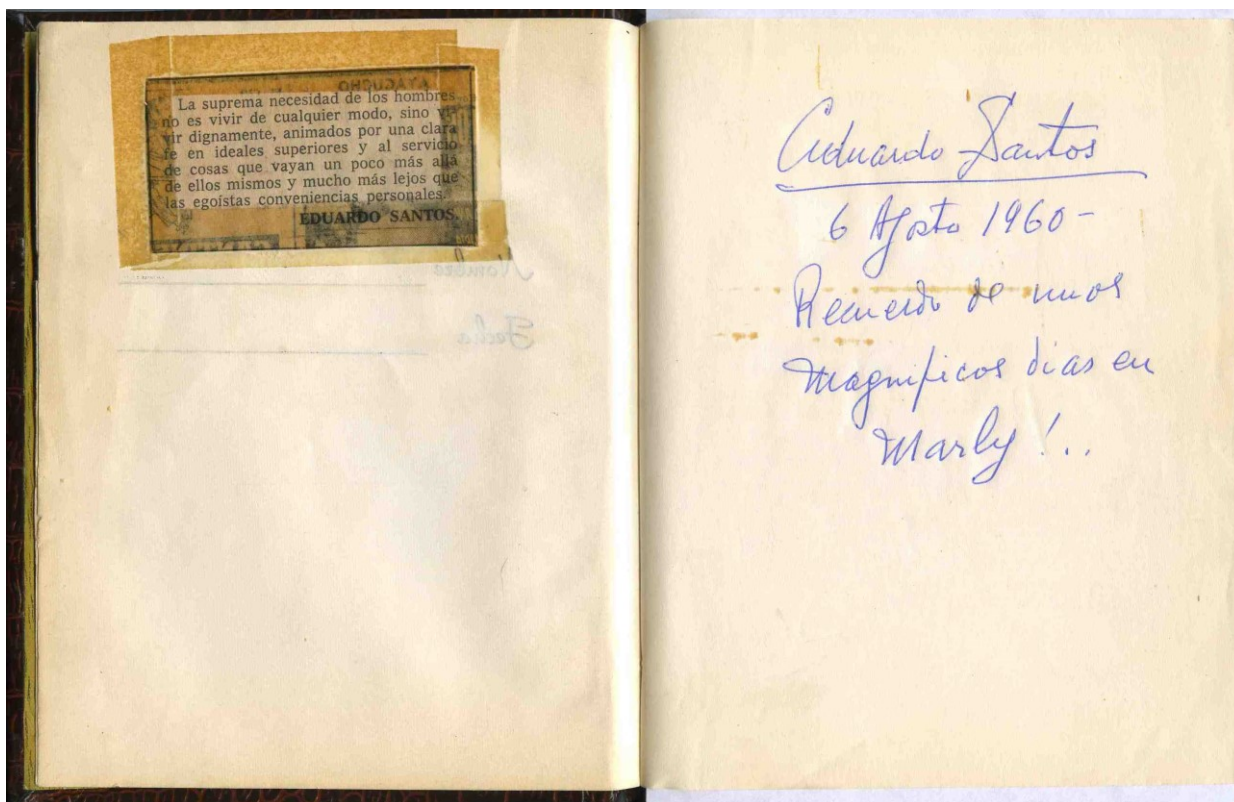 La suprema necesidad de los hombres
no es vivir de cualquier modo, sino vi-
vir dignamente, animados por una clara
fe en ideales superiores y al servicio
de cosas que vayan un poco más allá
de ellos mismos y mucho más lejos que
las egoístas conveniencias personales.
EDUARDO SANTOS.
Nombre
Fecha
Eduardo Santos
6 Agosto 1960-
Recuerdo de unos
magnificos dias en
Marly!..